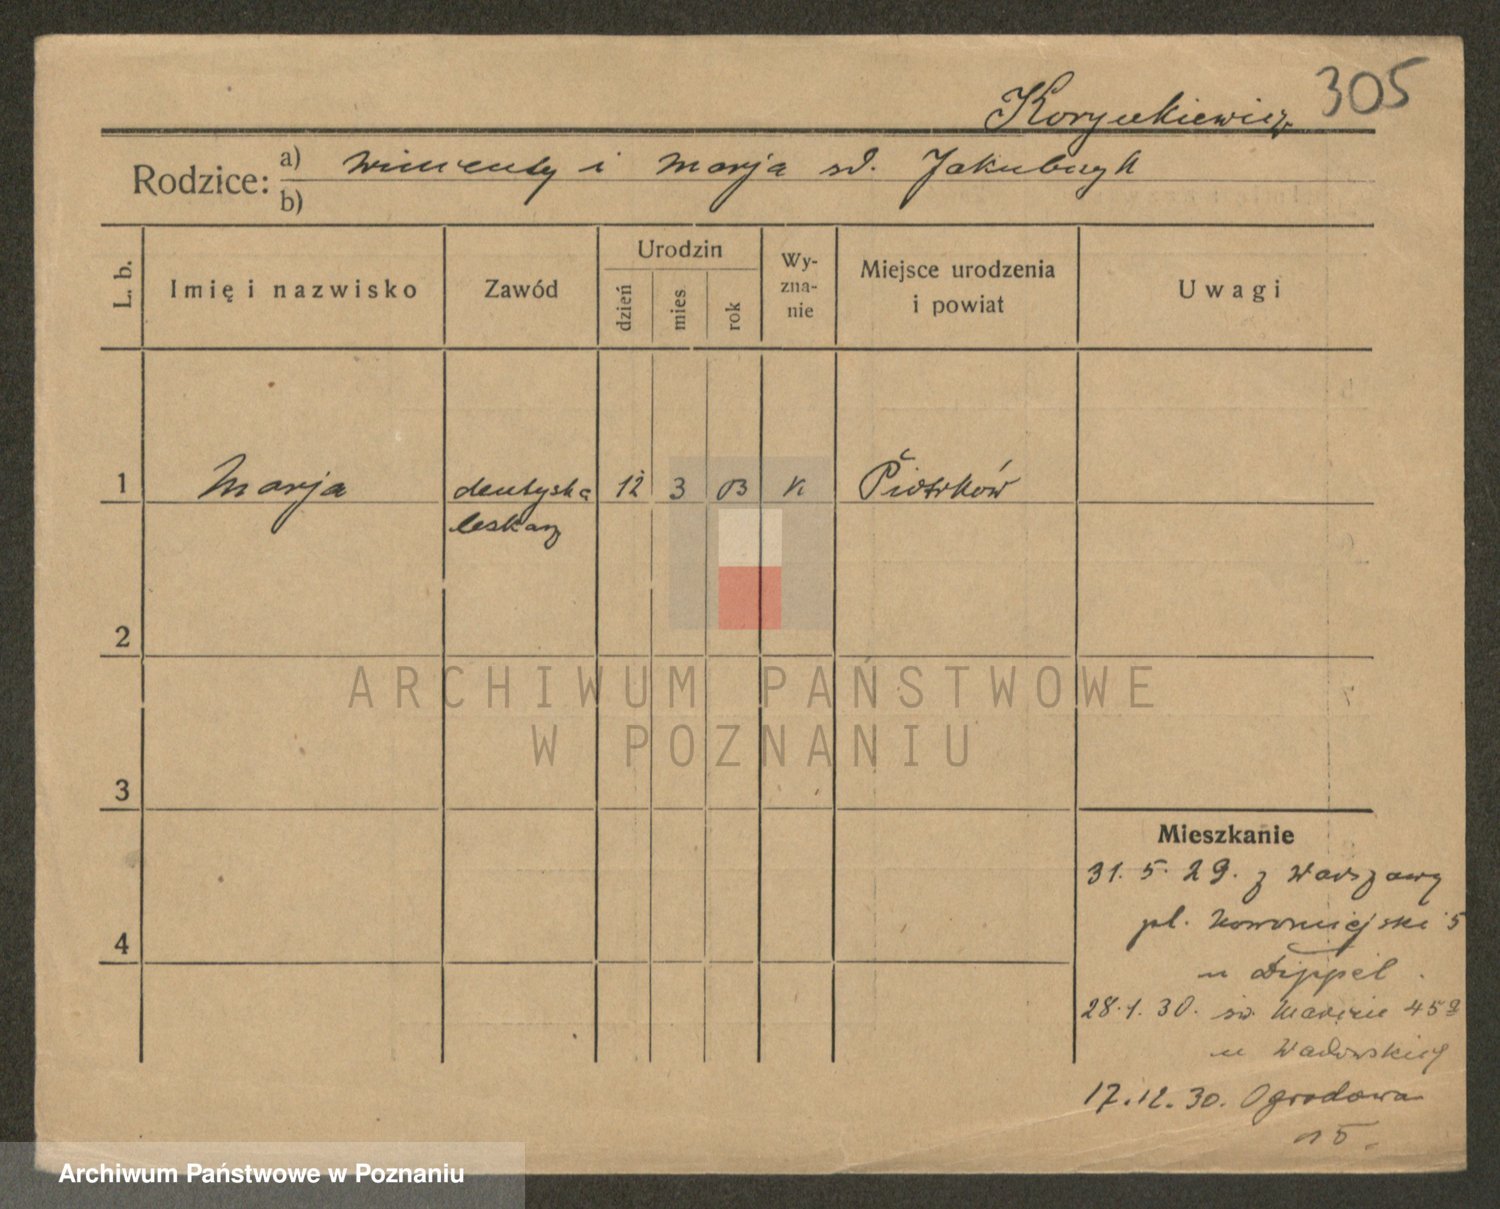 305
Rodzice:
a) Wincenty i Marja
b)
L. b.
Imię i nazwisko
Zawód
Urodzin
dzień
mies
rok
Wy-
zna-
nie
Miejsce urodzenia
i powiat
Uwagi
1
Marja
dentystka
12
3
03
k
Piotrków
lekarz
2
3
4
Mieszkanie
31. 5. 29. z Warszawy
pl. Nowomiejski 5
u Dippel
28. 1. 30. św. Marcin 45a
u
17.12.30. Ogrodowa
15.
ARCHIWUM PAŃSTWOWE
W POZNANIU
Archiwum Państwowe w Poznaniu